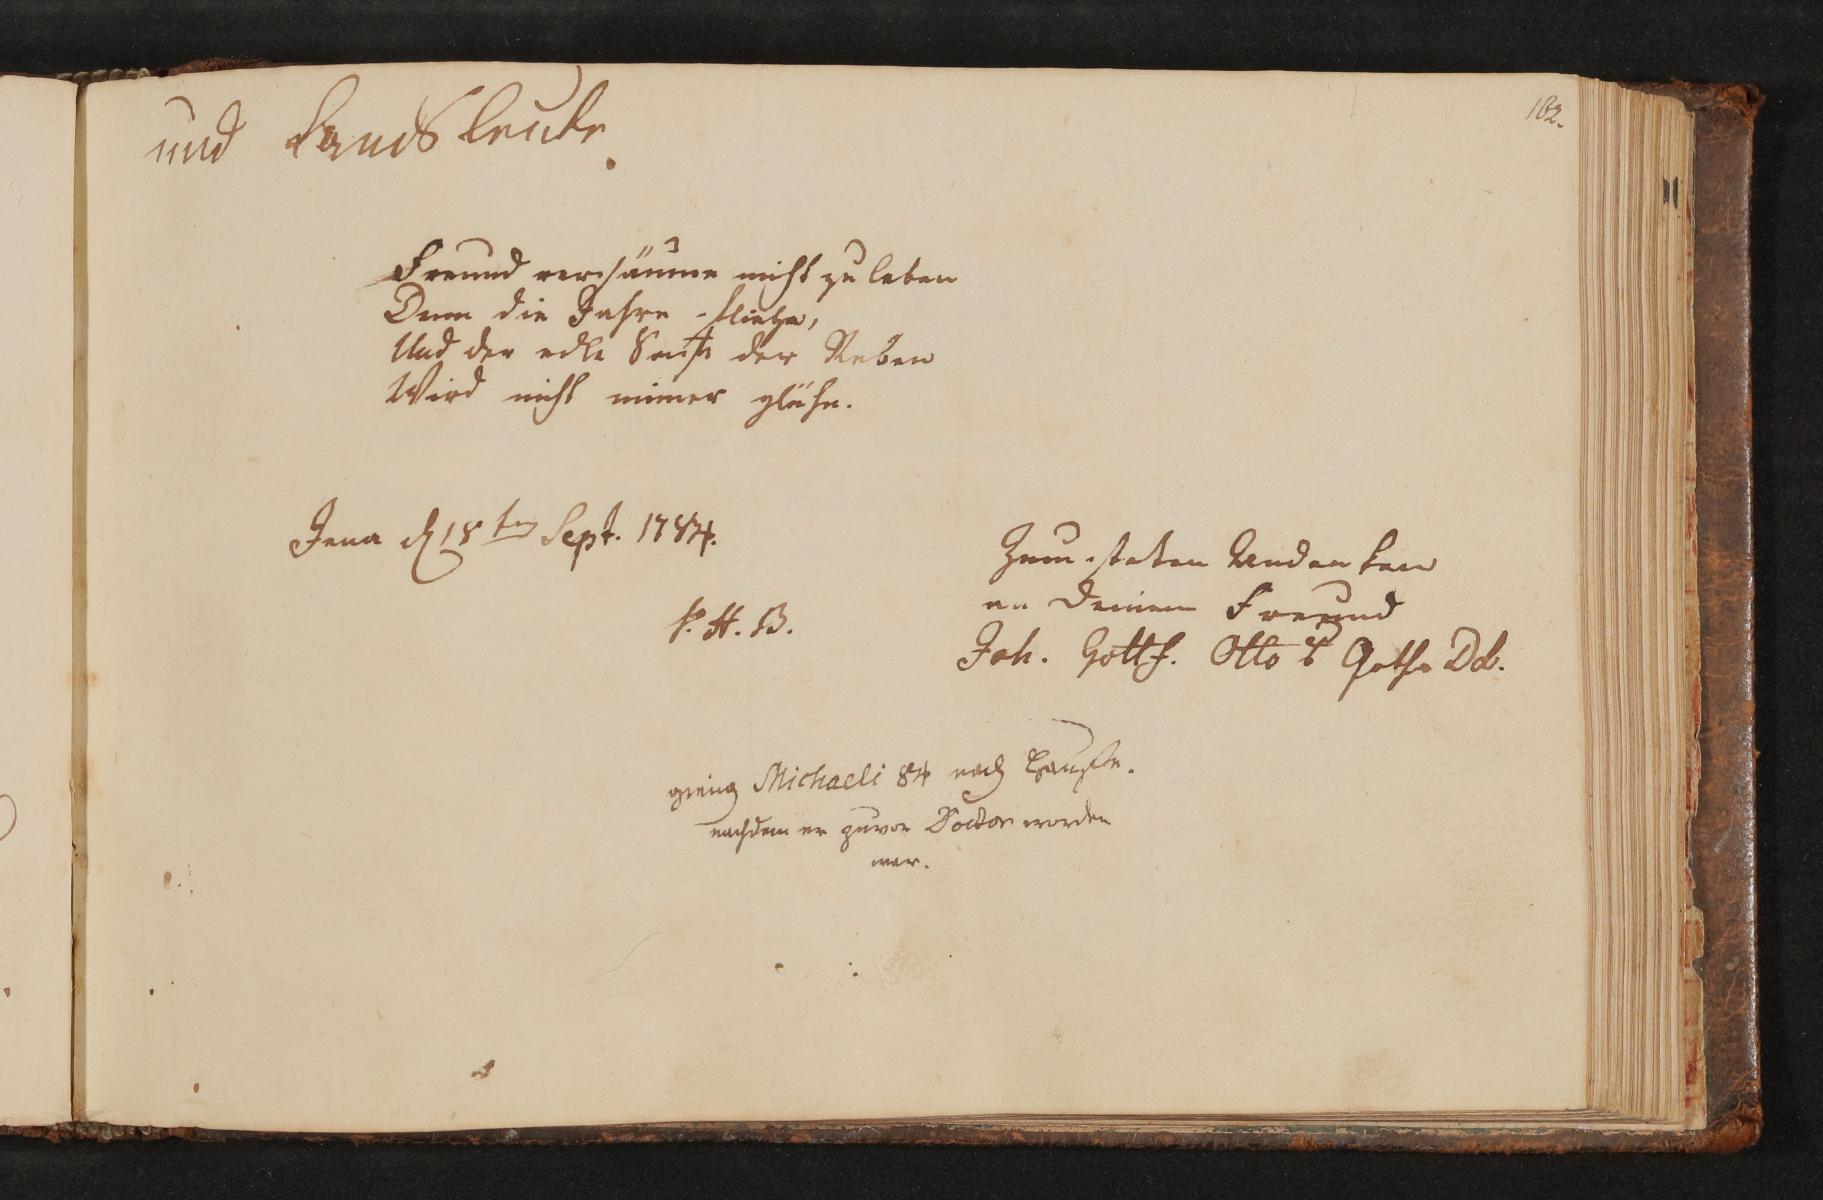 162.
und Landsleute.
Freund versäume nicht zu leben
Denn die Jahre fliehn,
Und der edle Saft der Reben
Wird nicht immer glühn.
Jena d 18ten Sept. 1784.
Zum steten Andenken
an Deinen Freund
P. H. B.
Joh. Gottf. Otto Gotha
gieng Michaeli 84 nach Hauße.
nachdem er zuvor Doctor worden
war.